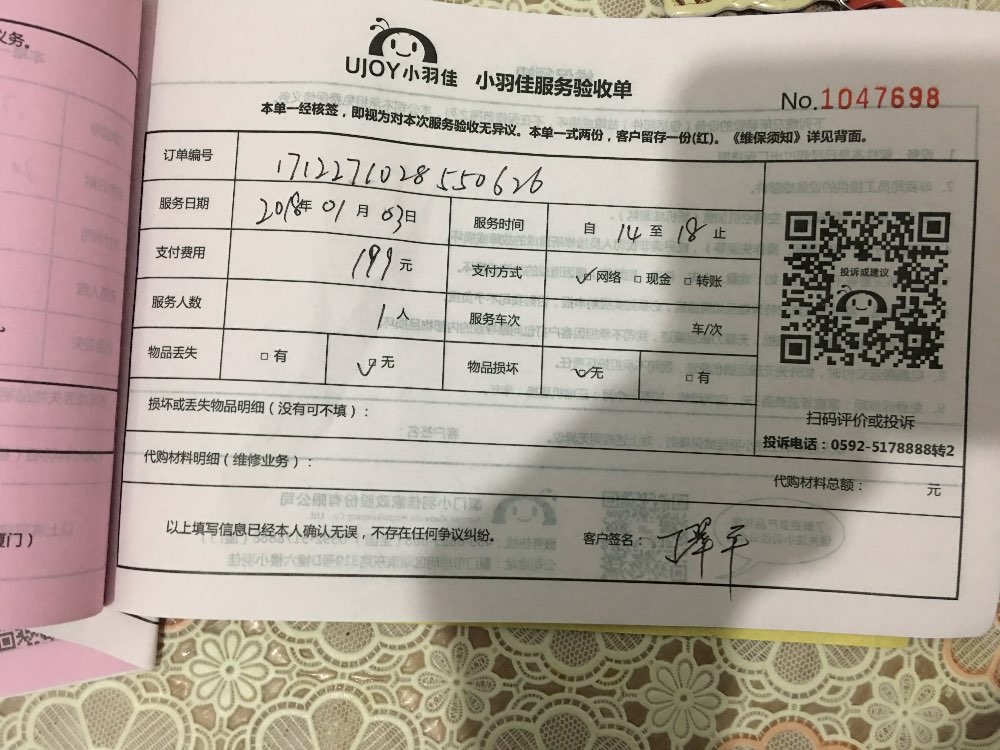 义务。
UJOY小羽佳 小羽佳服务验收单
No.1047698
本单一经核签，即视为对本次服务验收无异议。本单一式两份，客户留存一份(红)。《维保须知》详见背面。
订单编号 171227102855062​6
服务日期 2018年01月03日 服务时间 自 14 至 18 止
支付费用 199元 支付方式 网络 现金 转账
服务人数 1人 服务车次 车/次
物品丢失 有 无 物品损坏 无 有
投诉或建议
扫码评价或投诉
投诉电话：0592-5178888转2
损坏或丢失物品明细（没有可不填）：
代购材料明细（维修业务）：
代购材料总额： 元
以上填写信息已经本人确认无误，不存在任何争议纠纷。 客户签名：
厦门）